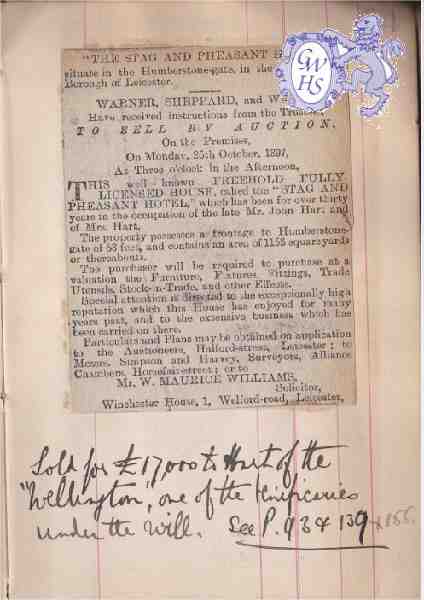 "THE STAG AND PHEASANT H
situate in the Humberstone-gate, in the
Borough of Leicester.
WARNER, SHEPPARD, and W
Have received instructions from the Trustees,
TO SELL BY AUCTION,
On the Premises,
On Monday, 25th October, 1897,
At Three o'clock in the Afternoon,
THIS well known FREEHOLD FULLY-
LICENSED HOUSE, called the "STAG AND
PHEASANT HOTEL," which has been for over thirty
years in the occupation of the late Mr. John Hart and
of Mrs. Hart.
The property possesses a frontage to Humberstone-
gate of 58 feet, and contains an area of 1155 square yards
or thereabouts.
The purchaser will be required to purchase at a
valuation the Furniture, Fixtures, Fittings, Trade
Utensils, Stock-in-Trade, and other Effects.
Special attention is directed to the exceptionally high
reputation which this House has enjoyed for many
years past, and to the extensive business which has
been carried on there.
Particulars and Plans may be obtained on application
to the Auctioneers, Halford-street, Leicester; to
Messrs. Simpson and Harvey, Surveyors, Alliance
Chambers, Horsefair-street; or to
Mr. W. MAURICE WILLIAMS,
Solicitor,
Winchester House, 1, Welford-road, Leicester.
Sold for £17,000 to Hart of the
"Wellington", one of the beneficiaries
under the Will. See P. 93 & 139 & 155.
GWHS